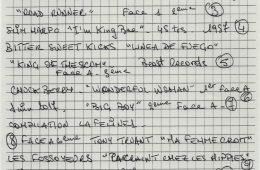 "ROAD RUNNER" Face 1 2ème ③
SLIM HARPO "I'm King Bee". 45 tos. 1957 ④
BITTER SWEET KICKS "LINEA DE FUEGO"
"KING OF THE SCUM" Beast Records ⑤
Face A. 2ème
CHUCK BERRY "WONDERFUL WOMAN" 1er Face A
"BIG BOY" 2ème Face A.
COMPILATION LA FELINE 1
⑧ FACE A 2ème TONY TRUANT "MA FEMME CROIT"
LES FOSSOYEURS "PARRAINT CHEZ LES HIPPIES"